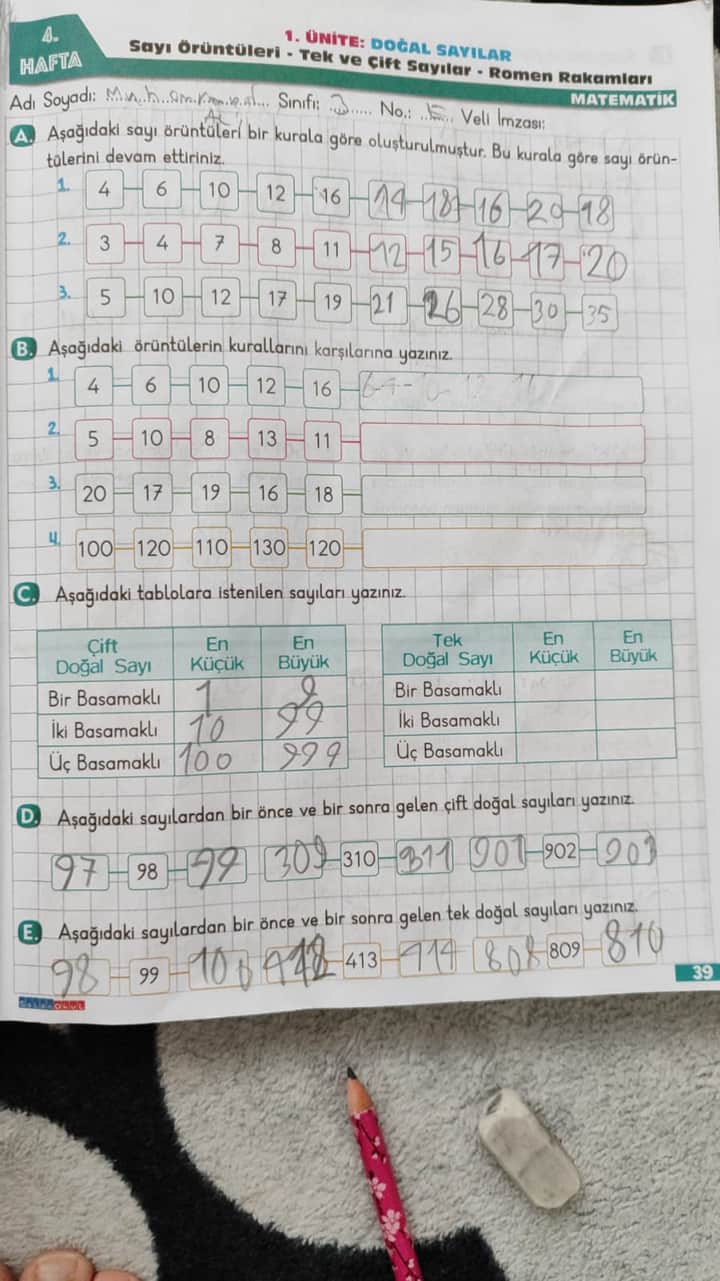 4.
HAFTA
1. ÜNİTE: DOĞAL SAYILAR
Sayı Örüntüleri - Tek ve Çift Sayılar - Romen Rakamları
MATEMATİK
Adı Soyadı: Sınıfı: 3 No.: Veli İmzası:
A. Aşağıdaki sayı örüntüleri bir kurala göre oluşturulmuştur. Bu kurala göre sayı örün-
tülerini devam ettiriniz.
1. 4 6 10 12 16 14 18 16 20 18
2. 3 4 7 8 11 12 15 16 17 20
3. 5 10 12 17 19 21 26 28 30 35
B. Aşağıdaki örüntülerin kurallarını karşılarına yazınız.
1. 4 6 10 12 16
2. 5 10 8 13 11
3. 20 17 19 16 18
4. 100 120 110 130 120
C. Aşağıdaki tablolara istenilen sayıları yazınız.
Çift Doğal Sayı En Küçük En Büyük
Bir Basamaklı 1 9
İki Basamaklı 10 99
Üç Basamaklı 100 999
Tek Doğal Sayı En Küçük En Büyük
Bir Basamaklı
İki Basamaklı
Üç Basamaklı
D. Aşağıdaki sayılardan bir önce ve bir sonra gelen çift doğal sayıları yazınız.
97 98 99 309 310 311 901 902 903
E. Aşağıdaki sayılardan bir önce ve bir sonra gelen tek doğal sayıları yazınız.
98 99 100 412 413 414 808 809 810
39